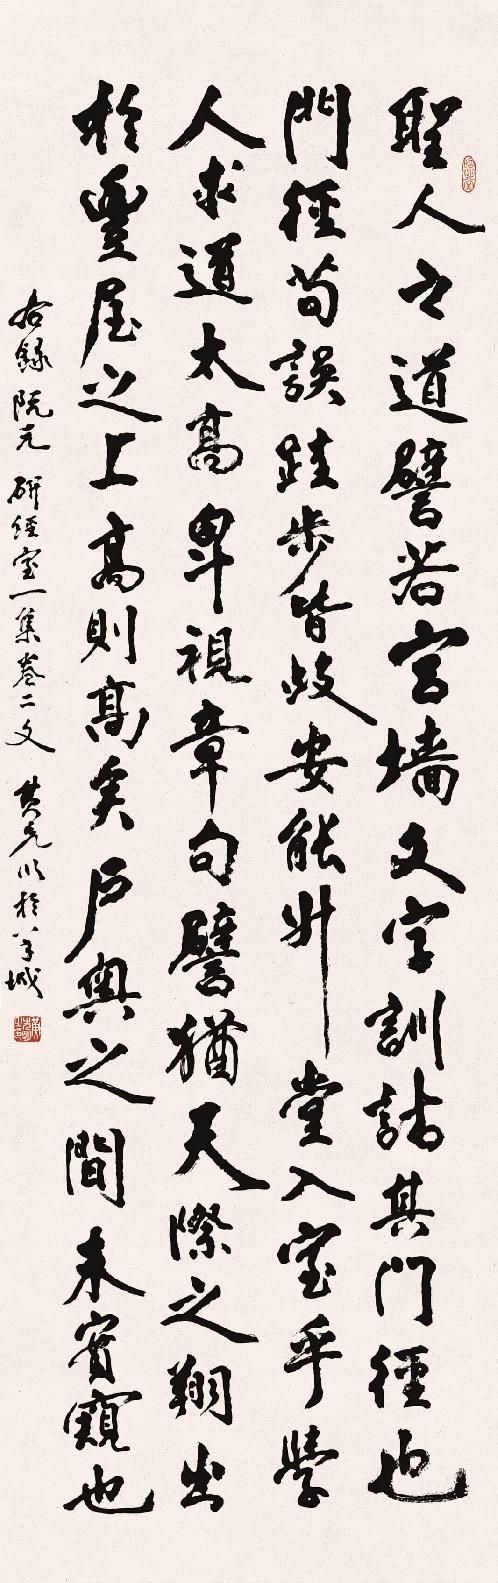 聖人之道譬若宮墻文字訓詁其門徑也
門徑苟誤跬步皆歧安能升堂入室乎學
人求道太高卑視章句譬猶天際之翔出
於豐屋之上高則高矣戶奧之間未實窺也
右錄阮元研經室一集卷二文
黃允以於羊城